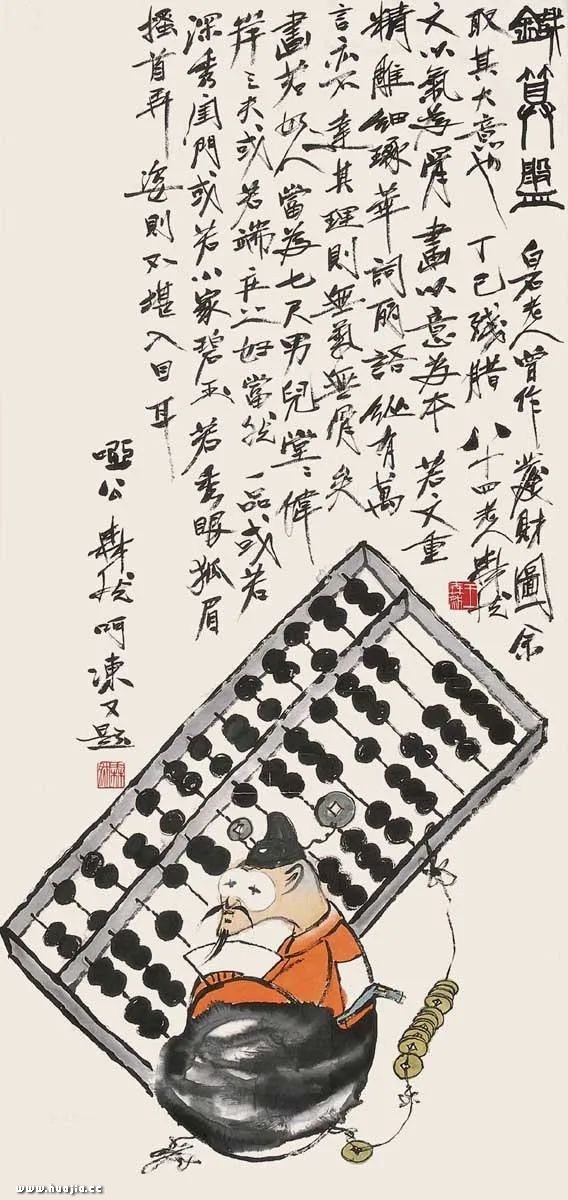 鐵算盤 白石老人曾作發財圖余
取其大意也 丁巳殘腊 八十四老人森然
文以氣為骨 畫以意為本 若文重
精雕細琢華詞丽語 縱有萬
言亦不達其理則無氣無骨矣
畫若如人當為七尺男兒堂〻偉
岸之夫或若端庄之好當然一品或若
深秀閨門或若小家碧玉若秀眼狐眉
搔首弄姿則不堪入目耳
啞公 森然呵凍又題
www.huajia.cc